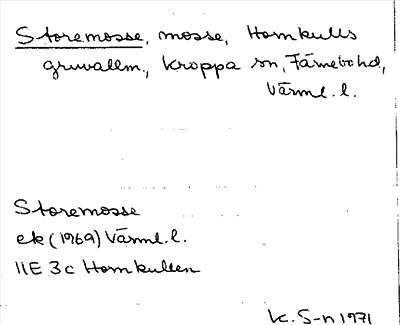 Storemosse, mosse, Hornkulls
gruvallm., Kroppa sn, Färnebo hd,
Värml. l.
Storemosse
ek (1969) Värml. l.
11E 3c Hornkullen
K. S-n 1971